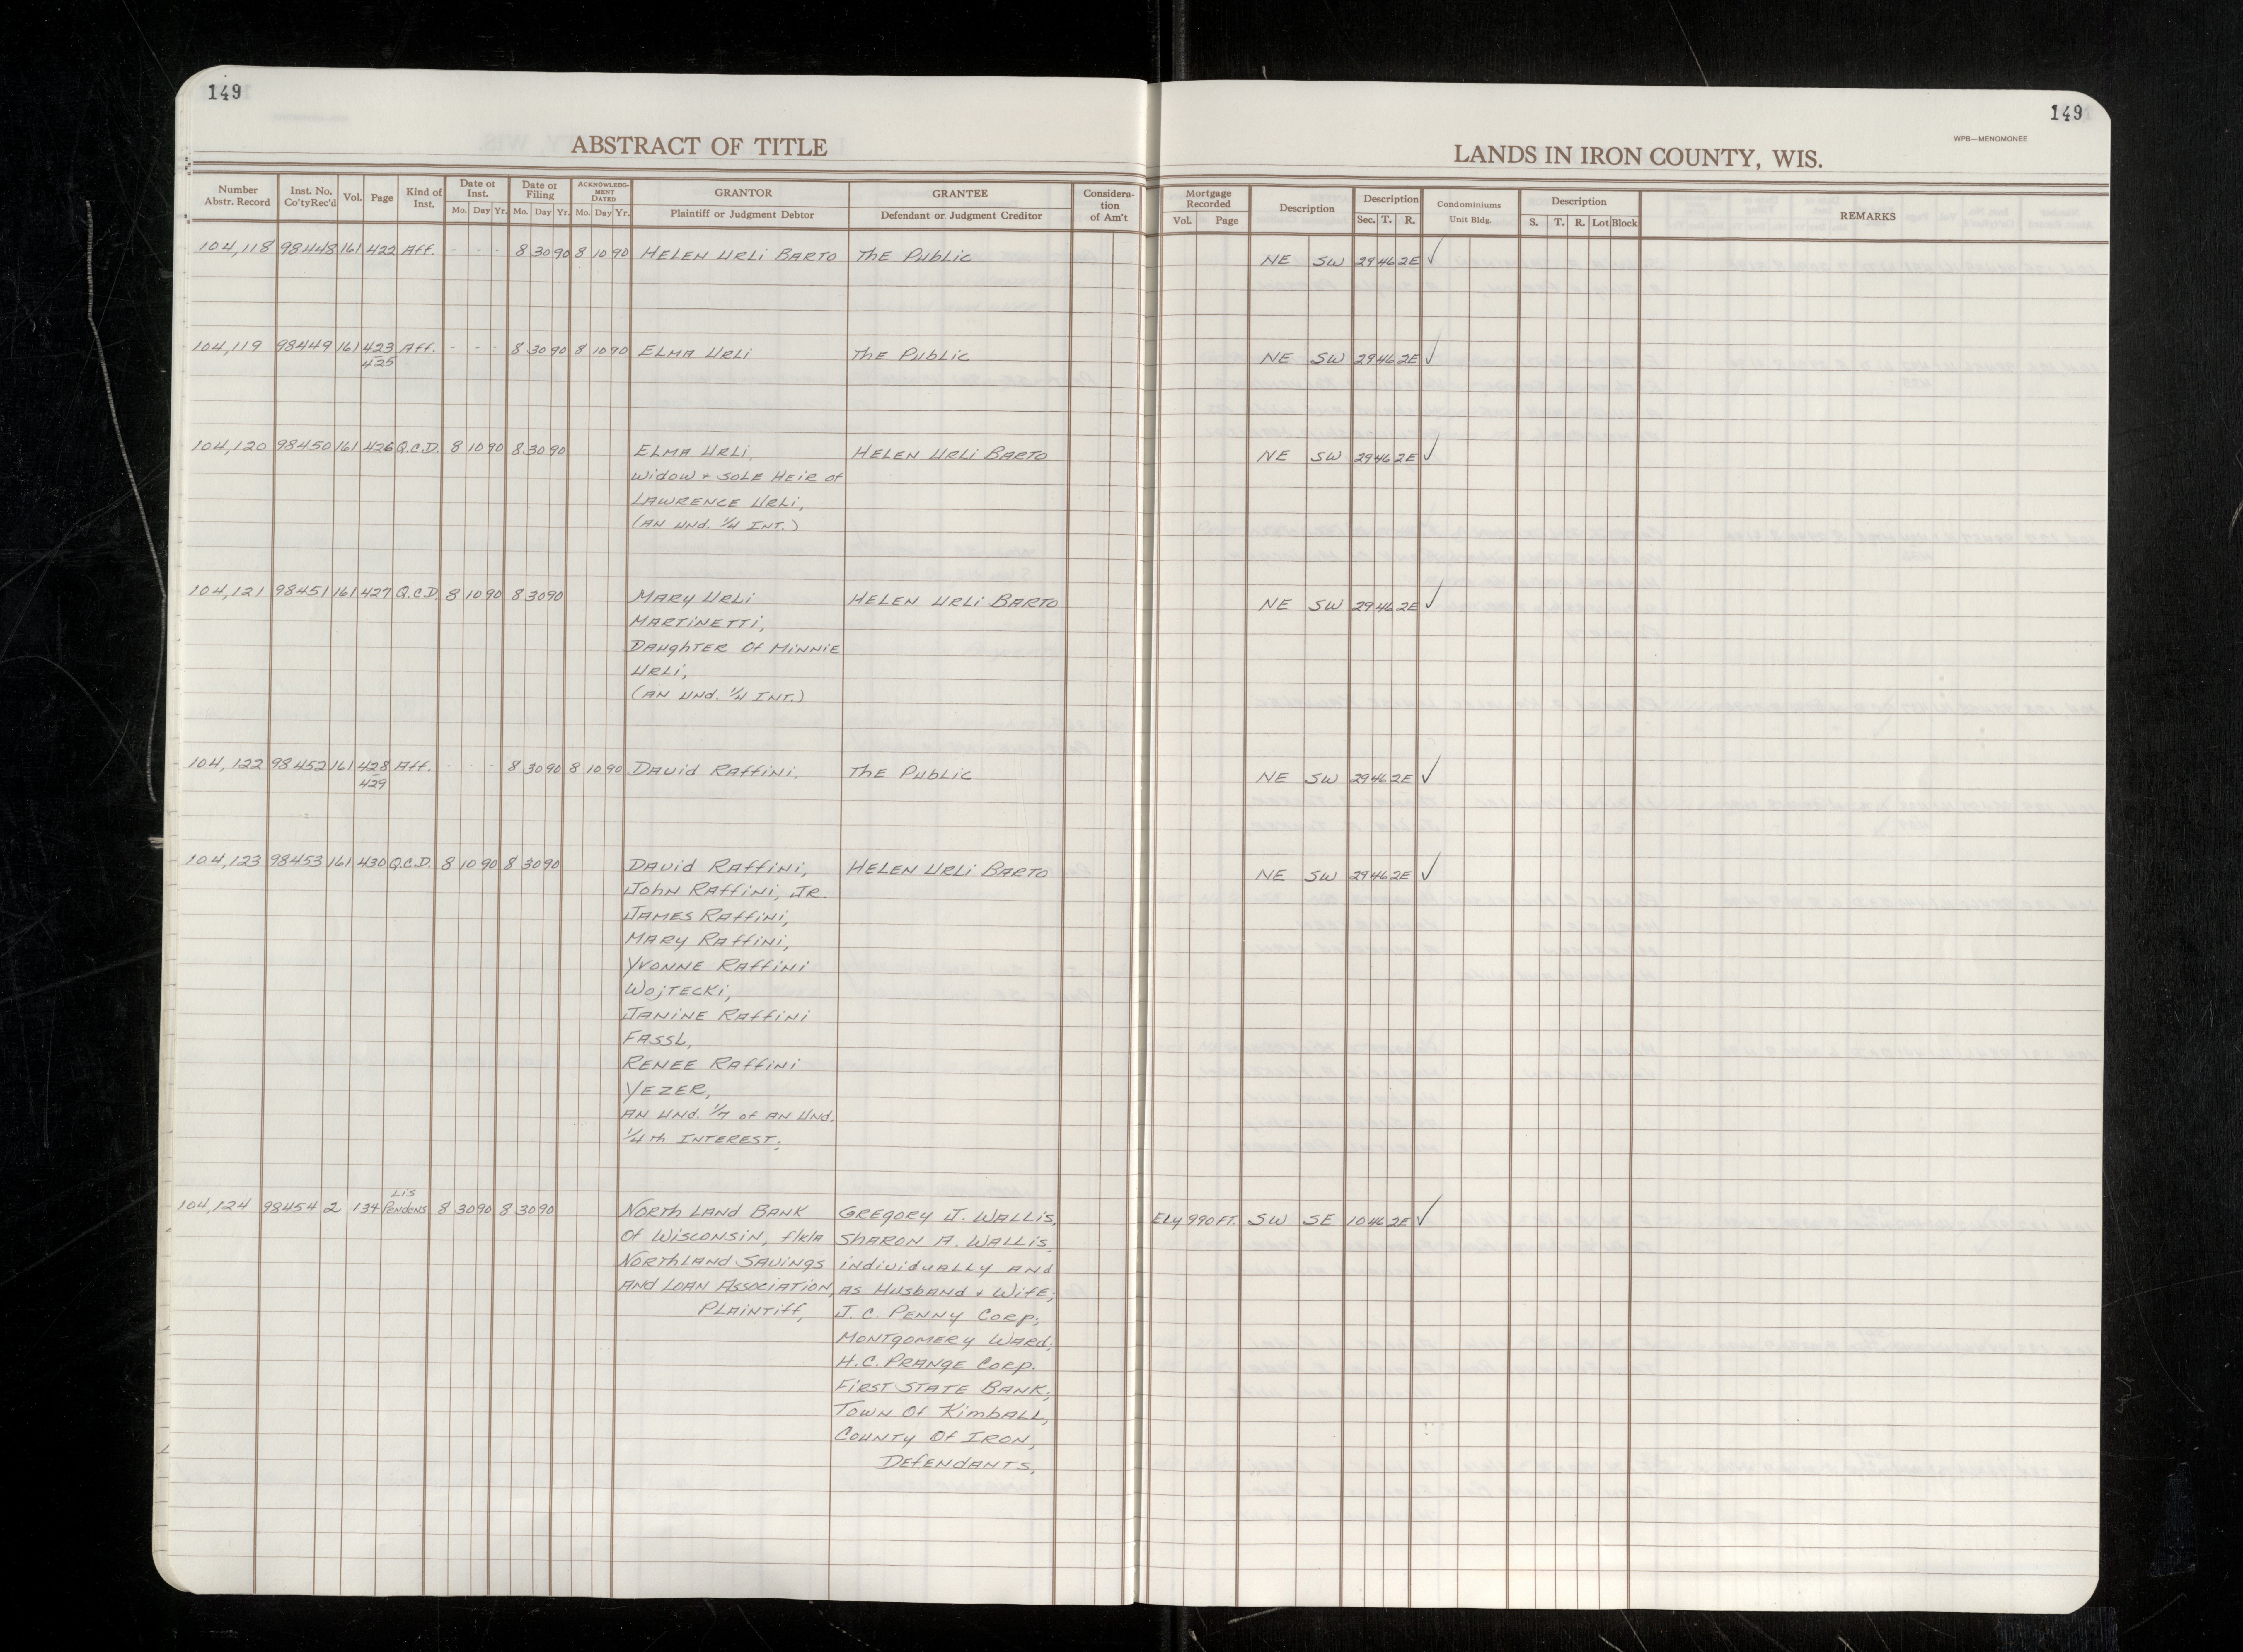 149
149
ABSTRACT OF TITLE
LANDS IN IRON COUNTY, WIS.
WPB—MENOMONEE
Number Abstr. Record
Inst. No. Co'ty Rec'd
Vol.
Page
Kind of Inst.
Date of Inst.
Mo. Day Yr.
Date of Filing
Mo. Day Yr.
ACKNOWLEDGMENT DATED
Mo. Day Yr.
GRANTOR
Plaintiff or Judgment Debtor
GRANTEE
Defendant or Judgment Creditor
Consideration of Am't
Mortgage Recorded
Vol. Page
Description
Description
Sec. T. R.
Condominiums
Unit Bldg.
Description
S. T. R. Lot Block
REMARKS
104,118 98448 161 422 Aff. - - - 8 30 90 8 10 90 HELEN URLi BARTO The Public NE SW 29 46 2E ✓
104,119 98449 161 423 Aff. - - - 8 30 90 8 10 90 ELMA URLi The Public NE SW 29 46 2E ✓
425
104,120 98450 161 426 Q.C.D. 8 10 90 8 30 90 ELMA URLi, HELEN URLi BARTO NE SW 29 46 2E ✓
Widow + SOLE HEiR of
LAWRENCE URLi,
(AN Und. 1/4 INT.)
104,121 98451 161 427 Q.C.D. 8 10 90 8 30 90 MARY URLi HELEN URLi BARTO NE SW 29 46 2E ✓
MARTiNETTi,
DAughTER Of MiNNiE
URLi,
(AN Und. 1/4 INT.)
104,122 98452 161 428 Aff. - - - 8 30 90 8 10 90 DAVid RAffiNi, The Public NE SW 29 46 2E ✓
429
104,123 98453 161 430 Q.C.D. 8 10 90 8 30 90 DAVid RAffiNi, HELEN URLi BARTO NE SW 29 46 2E ✓
JOhN RAffiNi, JR.
JAMES RAffiNi,
MARY RAffiNi,
YVONNE RAffiNi
WOjTECKi,
JANiNE RAffiNi
FASSL,
RENEE RAffiNi
YEZER,
AN Und. 1/7 of AN Und.
1/4 th INTEREST;
Lis
104,124 98454 2 134 Pendens 8 30 90 8 30 90 NORTh LANd BANK GREGORY J. WALLiS, ELy 990 FT. SW SE 10 46 2E ✓
Of WiSCONSiN, f/k/a ShARON A. WALLiS,
NORThLANd SAViNgS iNdividuALLY ANd
ANd LOAN ASSOCiATiON, AS HusbANd + WifE;
PLAiNTiff, J.C. PENNY CORP;
MONTgOMERY WARd;
H.C. PRANgE CORP.
FiRST STATE BANK;
TOWN Of KimbALL,
COUNTY Of IRON,
DEfENdANTS,